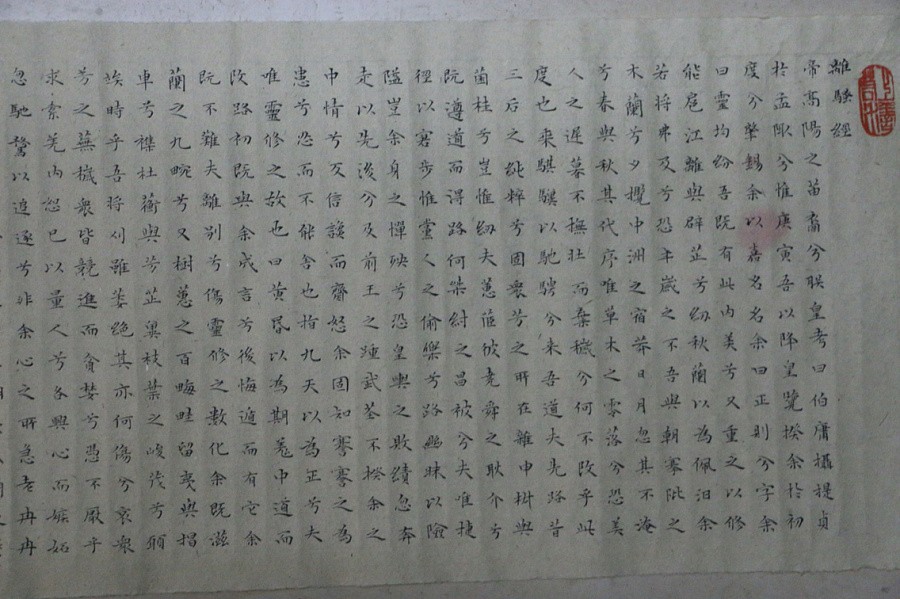 離騷經
帝高陽之苗裔兮朕皇考曰伯庸攝提貞
於孟陬兮惟庚寅吾以降皇覽揆余於初
度兮肇錫余以嘉名名余曰正則兮字余
曰靈均紛吾既有此內美兮又重之以修
能扈江離與辟芷兮紉秋蘭以為佩汩余
若將弗及兮恐年歲之不吾與朝搴阰之
木蘭兮夕攬中洲之宿莽日月忽其不淹
兮春與秋其代序唯草木之零落兮恐美
人之遲暮不撫壯而棄穢兮何不改乎此
度也乘騏驥以馳騁兮來吾道夫先路昔
三后之純粹兮固衆芳之所在離申椒與
菌桂兮豈惟紉夫蕙茝彼堯舜之耿介兮
既遵道而得路何桀紂之昌被兮夫唯捷
徑以窘步惟黨人之偷樂兮路幽昧以險
隘豈余身之憚殃兮恐皇輿之敗績忽奔
走以先後兮及前王之踵武荃不揆余之
中情兮反信讒而齌怒余固知謇謇之為
患兮忍而不能舍也指九天以為正兮夫
唯靈修之故也曰黃昏以為期羌中道而
改路初既與余成言兮後悔遁而有它余
既不難夫離別兮傷靈修之數化余既滋
蘭之九畹兮又樹蕙之百畮畦留夷與揭
車兮襍杜蘅與芳芷冀枝葉之峻茂兮願
竢時乎吾將刈雖萎絕其亦何傷兮哀衆
芳之蕪穢衆皆競進而貪婪兮憑不厭乎
求索羌內恕己以量人兮各興心而嫉妬
忽馳騖以追逐兮非余心之所急老冉冉